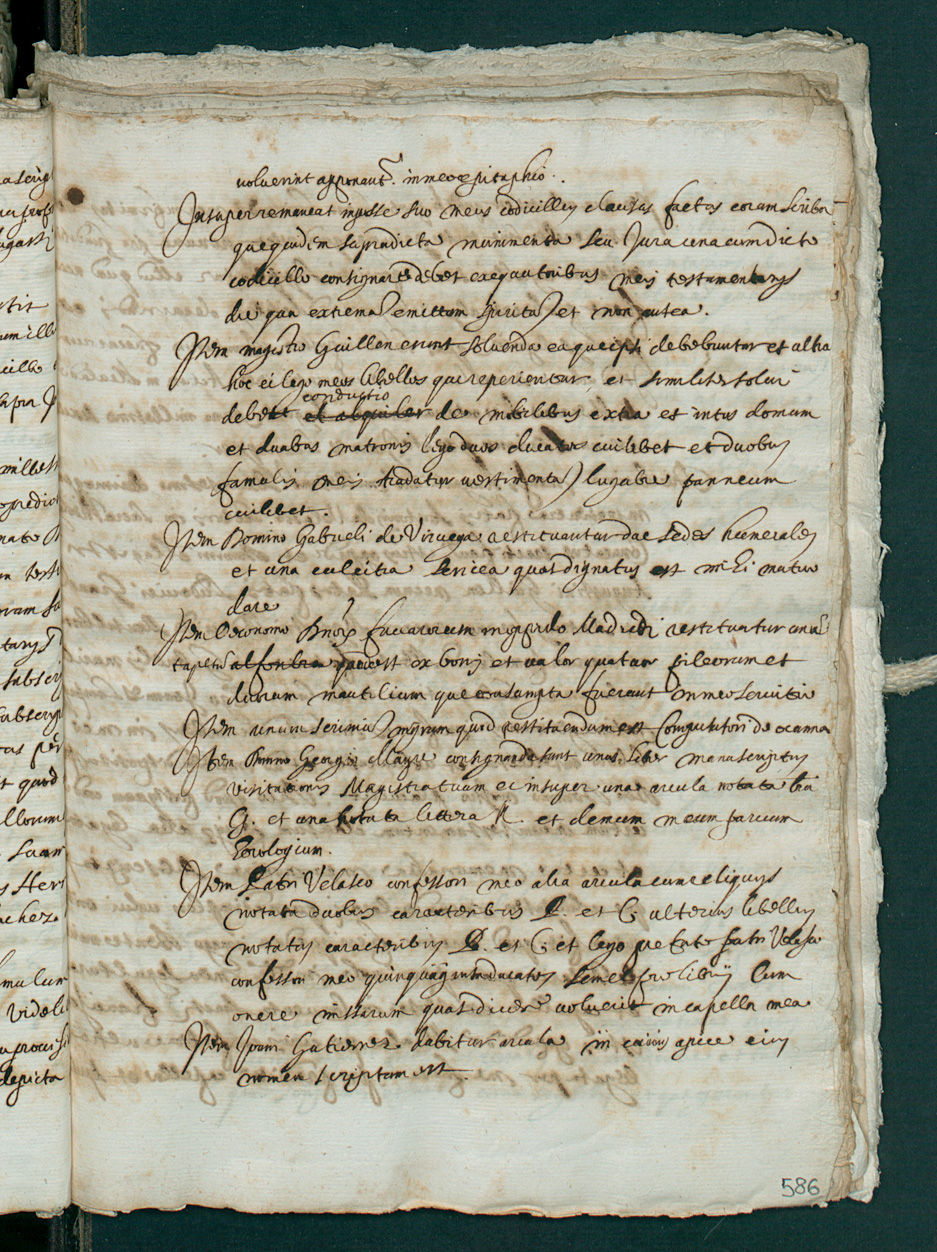 voluerint apponant in meo epitaphio.
Insuper remaneat in posse suo meus codicillus clausus factus coram scriba
que quidem supradicta munimenta seu Jura una cum dicto
codicillo consignare debet exequutoribus meis testamentarys
die qua extremum emittam spiritum et non antea.
Item magistro Guillen erunt soluenda ea que ipsi debebuntur et ultra
hoc ei lego meos libellos qui reperientur et similiter solui
conductio
debet et alquiler de mibilibus extra et intus domum
et duabus matronis lego duos ducatos cuilibet et duobus
famulis meis tradatur vestimentum lugubre panneum
cuilibet.
Item Domino Gabrieli de Viruega restituantur due sedes humerales
et una culcitra sericea quas dignatus est mihi mutuo
dare
Item Oeconomo Fuccarorum in oppido Madridi restituatur unum
tapetum alfombra est ex bonis et valor quatuor pileorum et
duorum mantilium que consumpta fuerunt in meo seruitio
Item unum scrinium nigrum quod restituendum est Computatori de ocanna
Item Domino Georgio Mayr consignanda sunt unus liber manuscriptus
visitationis Magistratuum et insuper una arcula notata
G. et una notata littera R. et demum meum paruum
horologium.
Item Patri Velasco confessori meo alia arcula cum reliquys
notata duobus caracteribus et C. alterius libellis
notatis caracteribus et C. et lego prefato patri Velasco
confessori meo quinquaginta ducatos semel pro libris cum
onere missarum quas dicere voluerit in capella mea
Item Joanni Gutierrez dabitur arcula in cuius apice eius
nomen scriptum est.
586